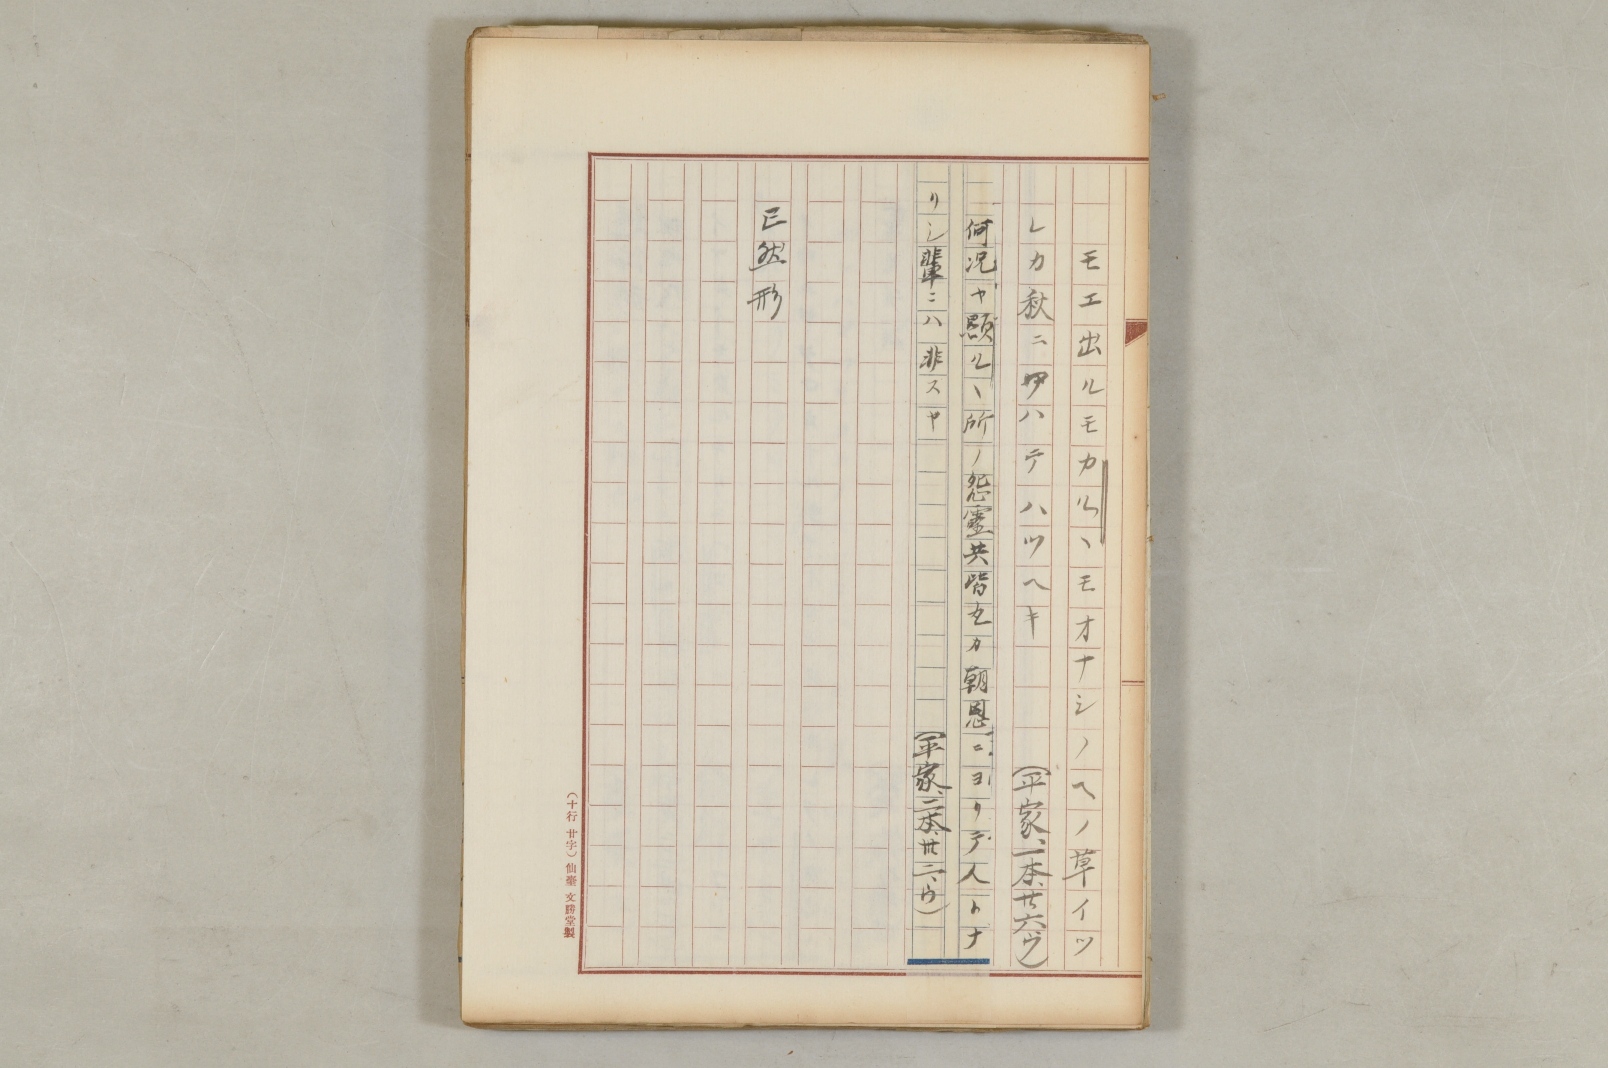 モエ出ルモカルヽモオナシノヘノ草イツ
レカ秋ニアハテハツヘキ（平家、一本、廿六ウ）
何況ヤ顕ルヽ所ノ怨霊共皆丘カ朝恩ニヨリテ人トナ
リシ輩ニハ非スヤ（平家、二本、廿二、ウ）
已然形
（十行廿字）仙臺文勝堂製